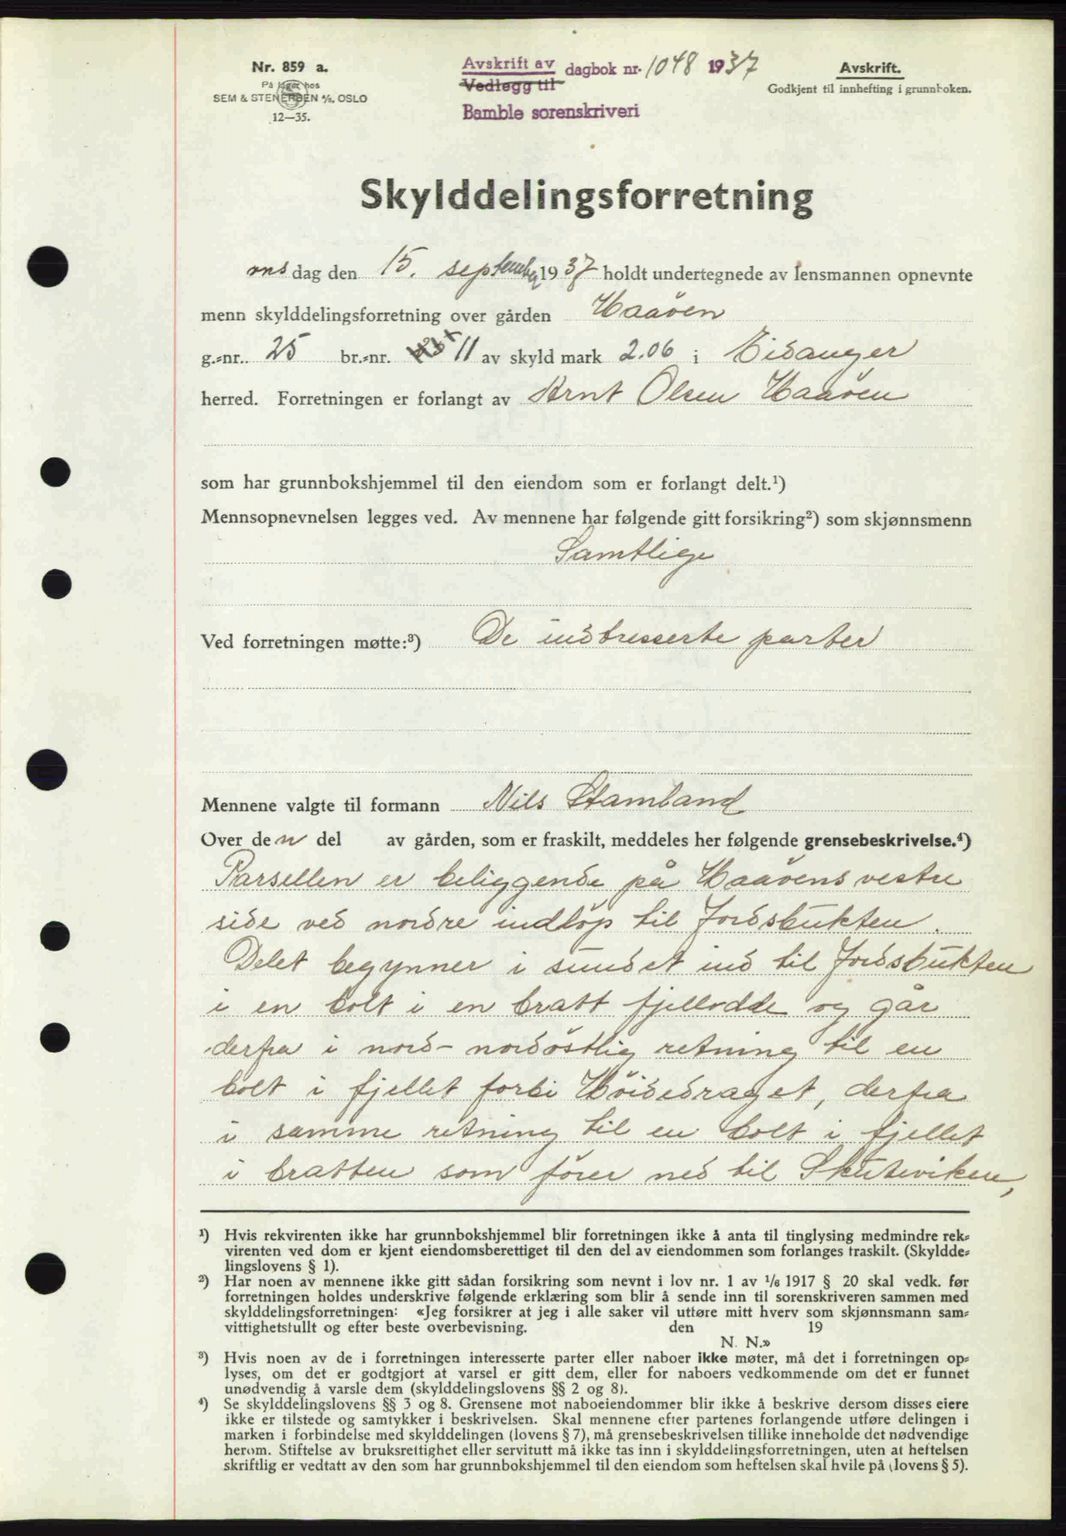 Nr. 859 a.
På lager hos
SEM & STENERSEN A/S, OSLO
12—35.
Avskrift av
Vedlegg til
dagbok nr. 1048 1937
Bamble sorenskriveri
Avskrift.
Godkjent til innhefting i grunnboken.
Skylddelingsforretning
onsdag den 15. september 1937 holdt undertegnede av lensmannen opnevnte
menn skylddelingsforretning over gården Haaöen
g.-nr. 25 br.-nr. 11 av skyld mark 2.06 i Eidanger
herred. Forretningen er forlangt av Arnt Olsen Haaöen
som har grunnbokshjemmel til den eiendom som er forlangt delt.¹)
Mennsopnevnelsen legges ved. Av mennene har følgende gitt forsikring²) som skjønnsmenn
Samtlige
Ved forretningen møtte:³) De indtresserte parter
Mennene valgte til formann Nils Stamland
Over den del av gården, som er fraskilt, meddeles her følgende grensebeskrivelse.⁴)
Parsellen er beliggende på Haaöens vestre
side ved nordre indlöp til Jordsbukten.
Delet begynner i sundet ind til Jordsbukten
i en bolt i en bratt fjellodde og går
derfra i nord-nordöstlig retning til en
bolt i fjellet forbi Höidedraget, derfra
i samme retning til en bolt i fjellet
i bratten som förer ned til Skuteviken,
¹) Hvis rekvirenten ikke har grunnbokshjemmel blir forretningen ikke å anta til tinglysing medmindre rek-
virenten ved dom er kjent eiendomsberettiget til den del av eiendommen som forlanges fraskilt. (Skyldde-
lingslovens § 1).
²) Har noen av mennene ikke gitt sådan forsikring som nevnt i lov nr. 1 av 1/6 1917 § 20 skal vedk. før
forretningen holdes underskrive følgende erklæring som blir å sende inn til sorenskriveren sammen med
skylddelingsforretningen: «Jeg forsikrer at jeg i alle saker vil utføre mitt hverv som skjønnsmann sam-
vittighetsfullt og efter beste overbevisning. den 19
N. N.»
³) Hvis noen av de i forretningen interesserte parter eller naboer ikke møter, må det i forretningen op-
lyses, om det er godtgjort at varsel er gitt dem, eller for naboers vedkommende om det er funnet
unødvendig å varsle dem (skylddelingslovens §§ 2 og 8).
⁴) Se skylddelingslovens §§ 3 og 8. Grensene mot naboeiendommer blir ikke å beskrive dersom disses eiere
ikke er tilstede og samtykker i beskrivelsen. Skal mennene efter partenes forlangende utføre delingen i
marken i forbindelse med skylddelingen (lovens § 7), må grensebeskrivelsen tillike inneholde det nødvendige
herom. Stiftelse av bruksrettighet eller servitutt må ikke tas inn i skylddelingsforretningen, uten at heftelsen
skriftlig er vedtatt av den som har grunnbokshjemmel til den eiendom som heftelsen skal hvile på (lovens § 5).